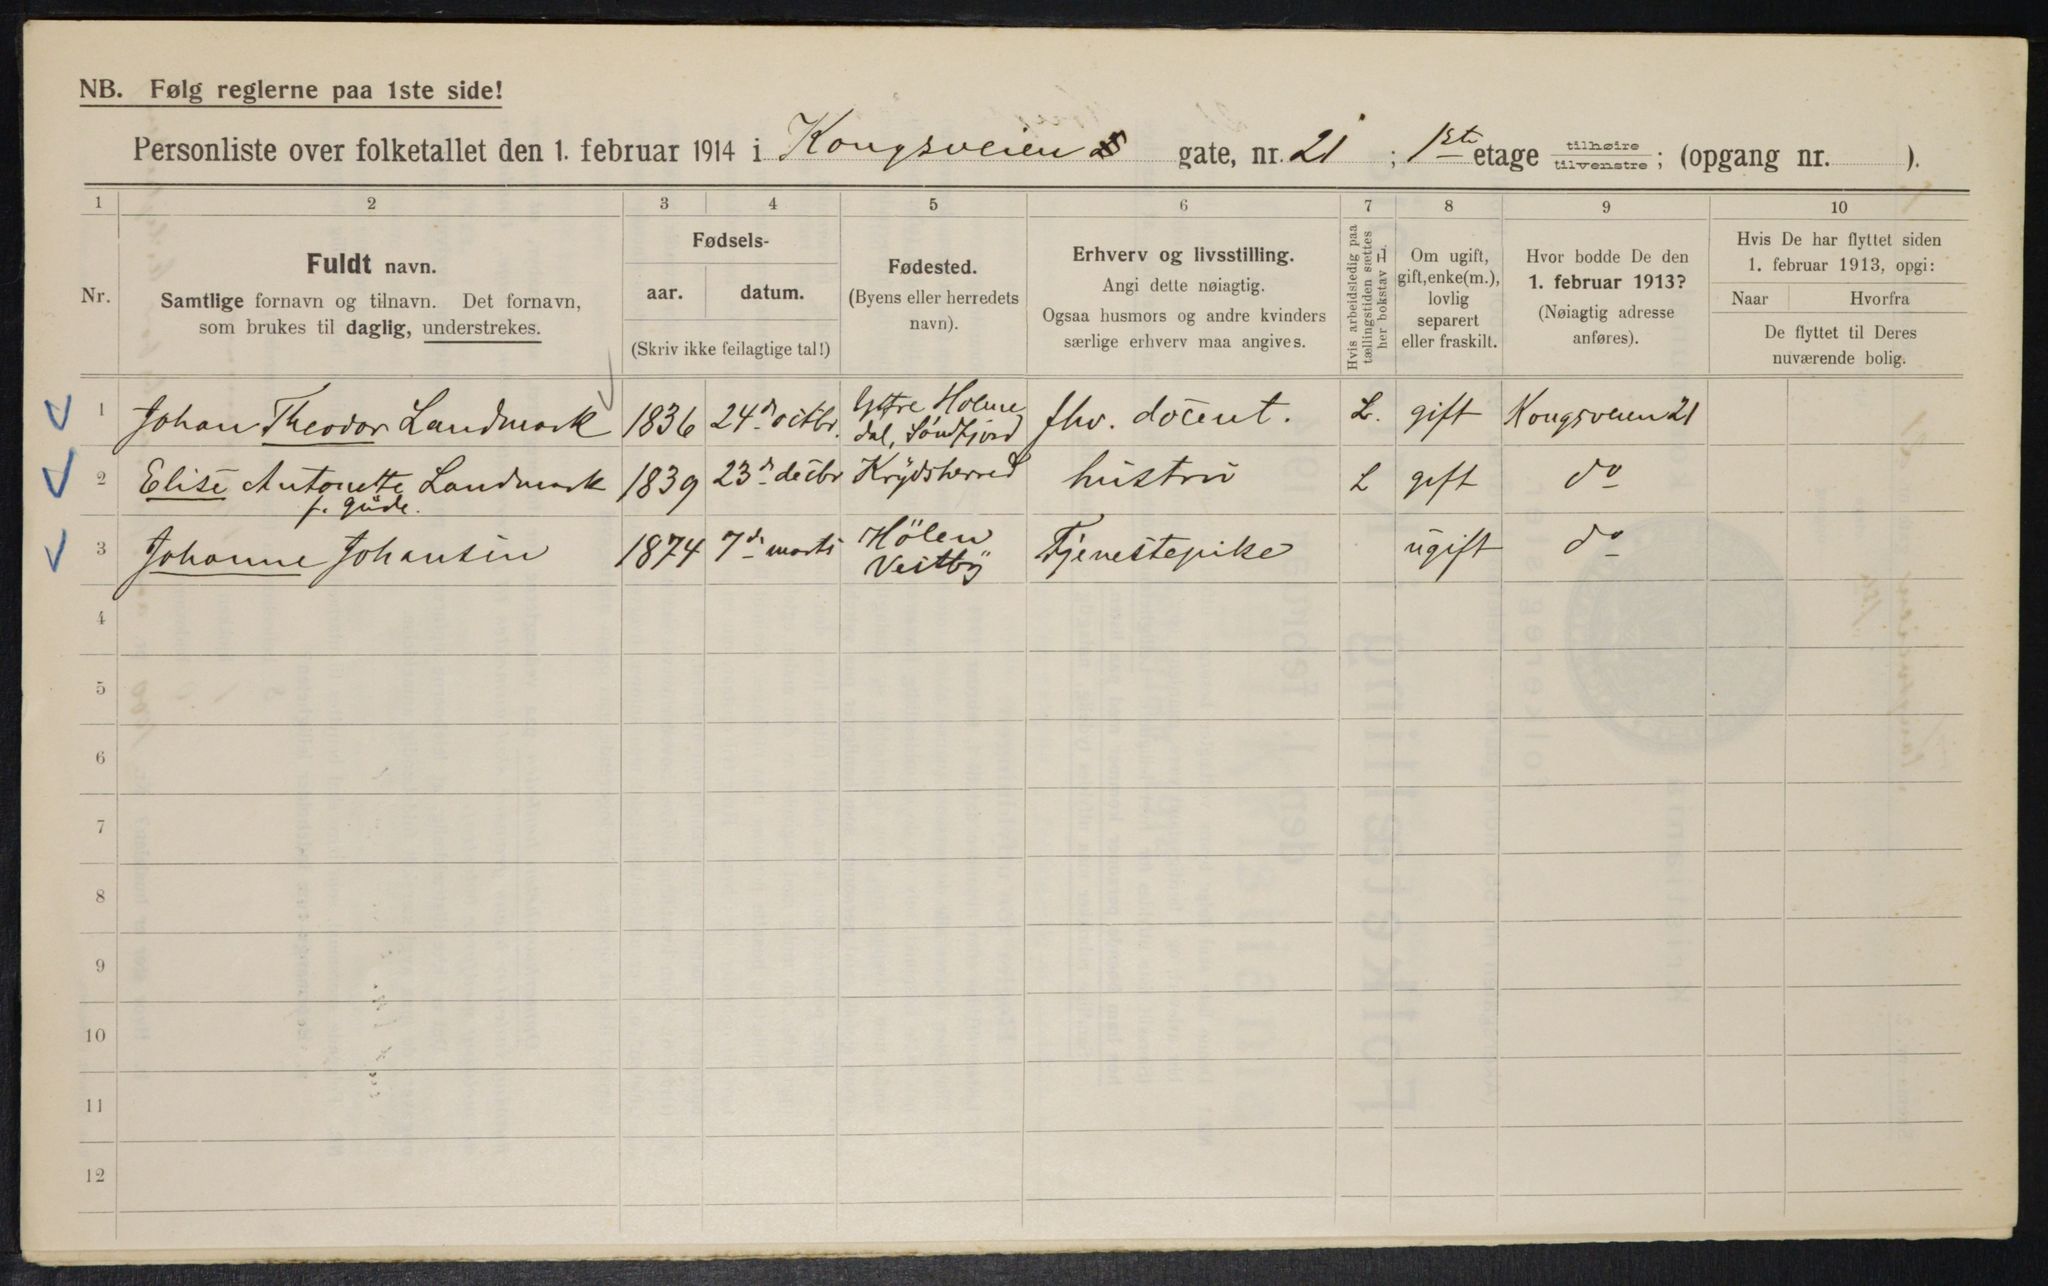 NB. Følg reglerne paa 1ste side!
Personliste over folketallet den 1. februar 1914 i Kongsveien gate, nr. 21 ; 1ste etage tilhøire tilvenstre ; (opgang nr. ).
1 2 3 4 5 6 7 8 9 10
Nr.
Fuldt navn.
Samtlige fornavn og tilnavn. Det fornavn,
som brukes til daglig, understrekes.
Fødsels-
aar. datum.
(Skriv ikke feilagtige tal!)
Fødested.
(Byens eller herredets
navn).
Erhverv og livsstilling.
Angi dette nøiagtig.
Ogsaa husmors og andre kvinders
særlige erhverv maa angives.
Hvis arbeidsledig paa
tællingstiden sættes
her bokstav L.
Om ugift,
gift, enke(m.),
lovlig
separert
eller fraskilt.
Hvor bodde De den
1. februar 1913?
(Nøiagtig adresse
anføres).
Hvis De har flyttet siden
1. februar 1913, opgi:
Naar Hvorfra
De flyttet til Deres
nuværende bolig.
1 Johan Theodor Landmark 1836 24d octbr. Yttre Holme fhv. docent. L. gift Kongsveien 21
dal, Søndfjord
2 Elise Antonette Landmark 1839 23d decbr Krydsherred hustru L gift do
f. Gude.
3 Johanne Johansen 1874 7d marts Hölen Tjenestepike ugift do
Vestby
4
5
6
7
8
9
10
11
12